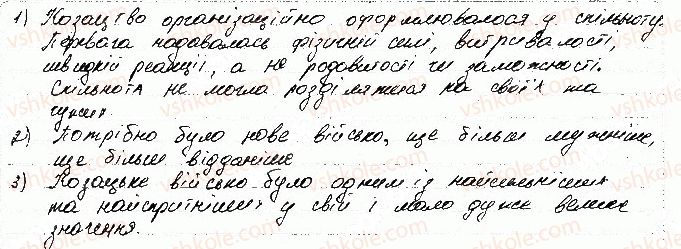 1) Козацтво організаційно оформлювалося у спільноту.
Перевага надавалась фізичній силі, витривалості,
швидкій реакції, а не родовитості чи заможності.
Спільнота не могла розділятися на своїх та
чужих.
2) Потрібно було нове військо, ще більш мужніше,
ще більш відданіше
3) Козацьке військо було одним із найсильніших
та найспритніших у світі і мало дуже велике
значення.